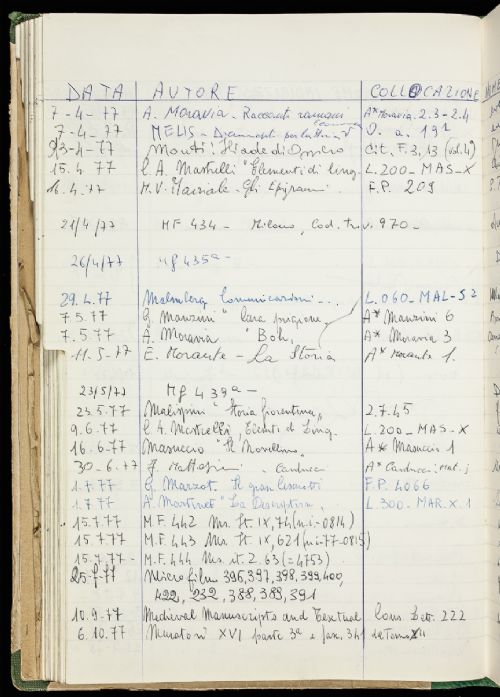 DATA AUTORE COLLOCAZIONE
7-4-77 A. Moravia - Racconti romani A* Moravia. 2.3-2.4
7-4-77 MELIS - O. a. 191
23-4-77 Monti "Iliade di Omero Cit. F.3,13 (vol. 4)
15.4.77 G.A. Mastrelli "Elementi di ling. L.200-MAS-X
16.4.77 M.V. Marziale - Gli Epigrammi F.P. 209
21/4/77 MF 434 - Milano, Cod. Triv. 970-
26/4/77 Mf 435a-
29.4.77 Malmberg Comunicazioni... L.060-MAL-S2
7.5.77 G. Manzini "Cara prigione A* Manzini 6
7.5.77 A. Moravia "Boh" A* Moravia 3
11.5-77 E. Morante - La Storia A* Morante 1.
23/5/77 Mf 439a-
23.5.77 Malispini "Storia fiorentina" 2.7.45
9.6.77 G.A. Mastrelli, Elementi di Ling. L.200-MAS-X
16.6.77 Masuccio "Il Novellino" A* Masuccio 1
30-6-77 - Carducci A* Carducci:
1.7.77 G. Marzot. Il gran F.P. 4066
1.7.77 A. Martinet "La L.300-MAR.X.1
15.7.77 M.F. 442 Ms. It. IX, 74 (n.i.-0814)
15.7.77 M.F. 443 Ms. It. IX, 621 (ni-77-0815)
15.7.77- M.F. 444 Ms. it. Z.63 (=4753)
25-7-77 Microfilm 396,397,398,399,400,
422, 232, 388, 389, 391
10.9-77 Medieval Manuscripts and Textual Cons. Lett. 222
6.10.77 Muratori XVI parte 3a e fasc.